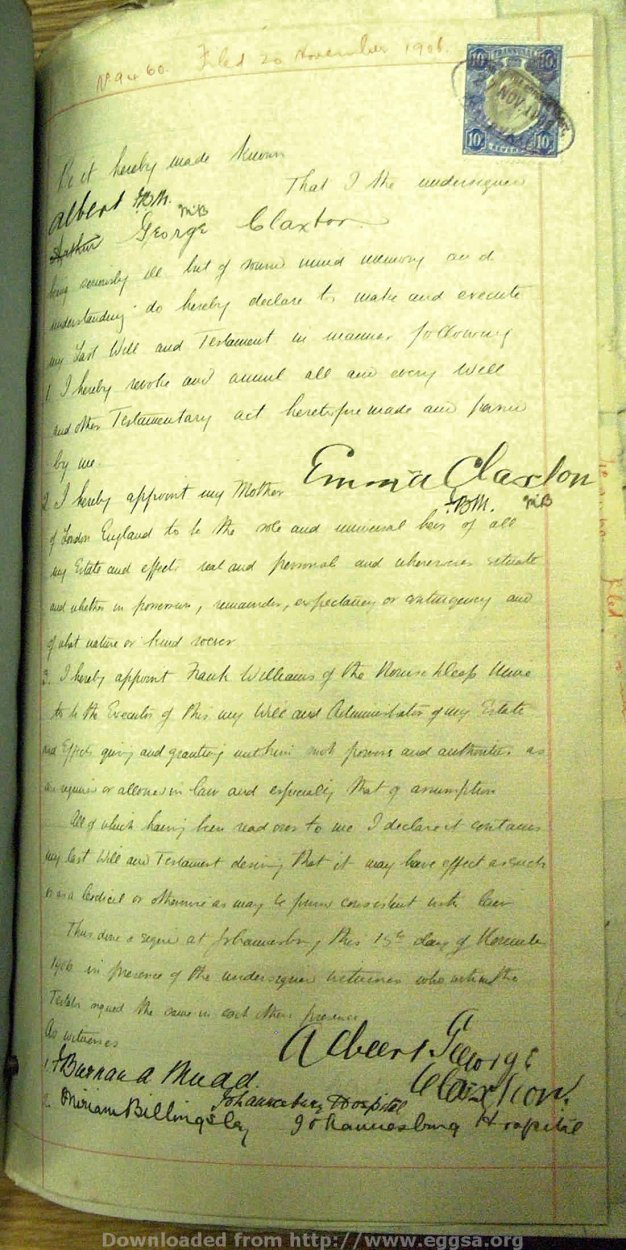 Filed 20 November 1906.
TRANSVAAL
10 10
NOV
10 10
REVENUE
Be it hereby made known
That I the undersigned
Albert F.B.M.
M.B
Arthur George Claxton
being seriously ill but of sound mind memory and
understanding do hereby declare to make and execute
my Last Will and Testament in manner following
1. I hereby revoke and annul all and every Will
and other Testamentary act heretofore made and passed
by me.
2. I hereby appoint my Mother Emma Claxton
F.B.M. M.B
of London England to be the sole and universal heir of all
my Estate and effects real and personal and wheresoever situate
and whether in possession, remainder, expectancy or contingency and
of what nature or kind soever
3. I hereby appoint Frank Williams of the Mine
to be the Executor of this my Will and Administrator of my Estate
and Effects giving and granting unto him such powers and authorities as
are required or allowed in law and especially that of assumption
All of which having been read over to me I declare it contains
my last Will and Testament desiring that it may have effect as such
or as a Codicil or otherwise as may be found consistent with law
Thus done & signed at Johannesburg this 15th day of November
1906 in presence of the undersigned witnesses who with the
Testator signed the same in each others presence
As witnesses
Albert George
Claxton.
1. F Barnard Mudd. Johannesburg Hospital
2. Miriam Billingsley Johannesburg Hospital
Downloaded from http://www.eggsa.org